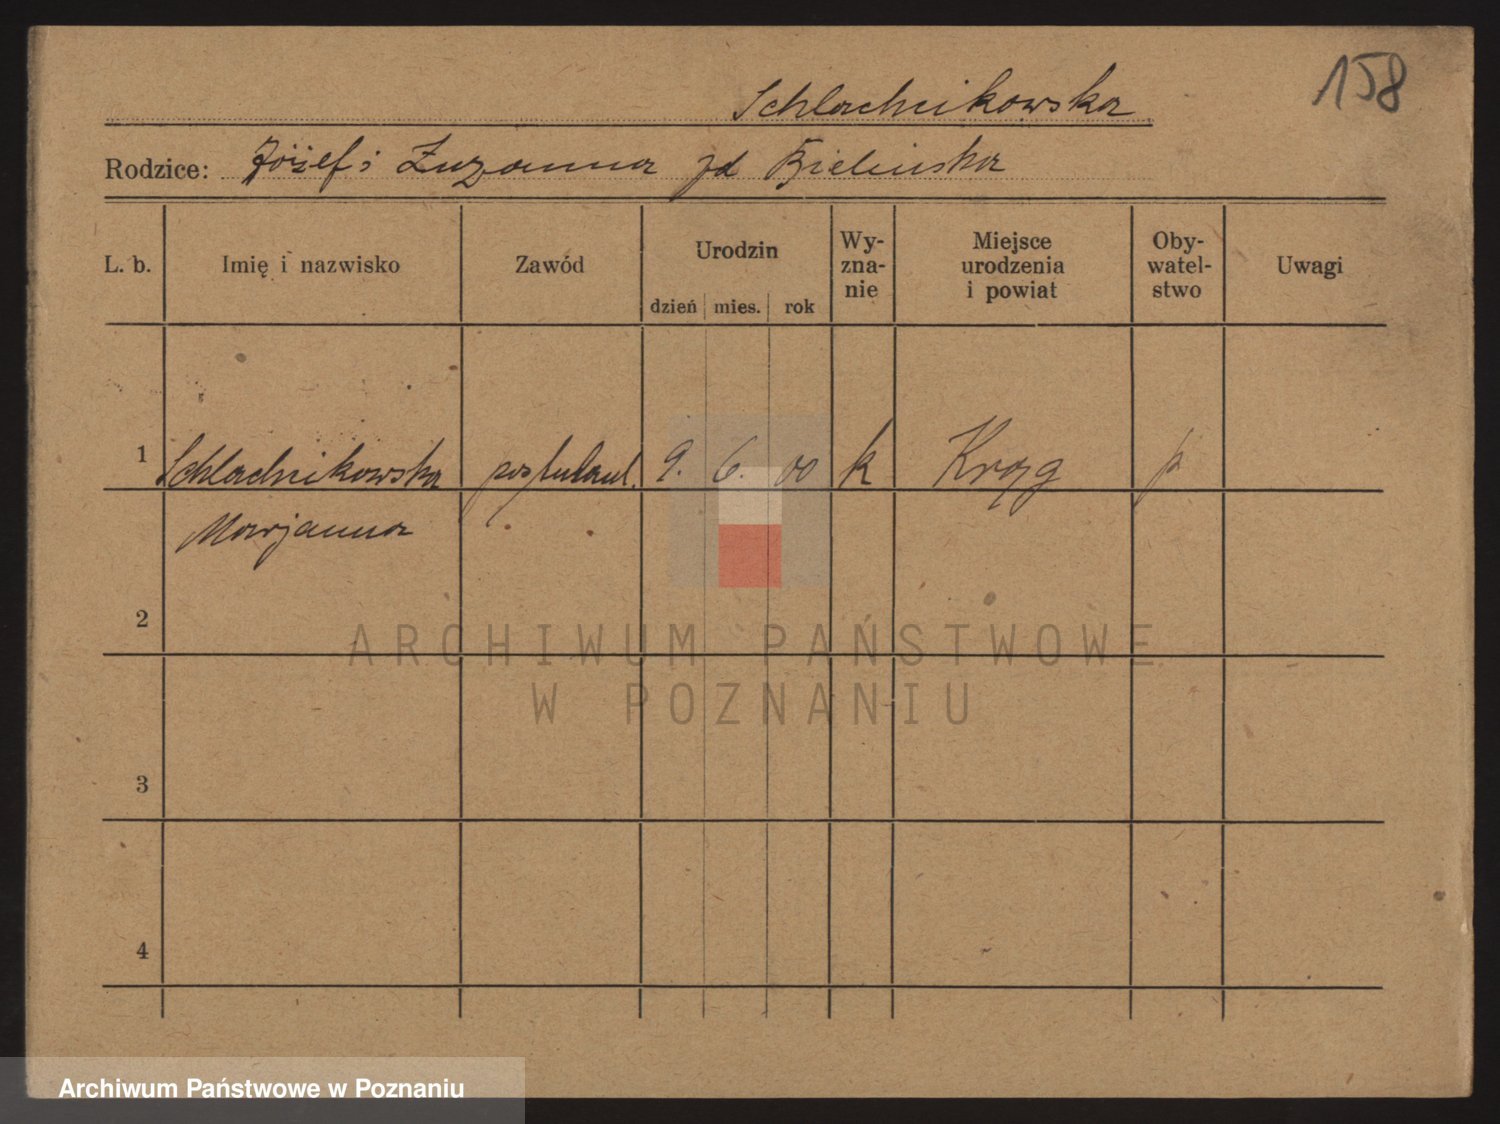 158
Schlachcikowska
Rodzice: Józef i Zuzanna zd Bielińska
L. b. Imię i nazwisko Zawód Urodzin Wy-zna-nie Miejsce urodzenia i powiat Oby-watel-stwo Uwagi
dzień mies. rok
1 Schlachcikowska postulant. 9. 6. 00 k Krąg p
Marjanna
2
3
4
ARCHIWUM PAŃSTWOWE
W POZNANIU
Archiwum Państwowe w Poznaniu